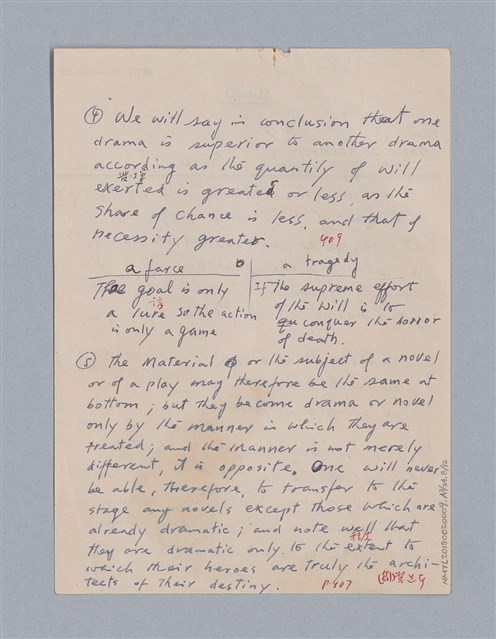 ④ We will say in conclusion that one
drama is superior to another drama
according as the quantity of will
exerted is greater or less, as the
share of chance is less, and that of
necessity greater. 409
a farce
a tragedy
The goal is only
a lure so the action
is only a game
If the supreme effort
of the Will is to
conquer the horror
of death.
⑤ The material or the subject of a novel
or of a play may therefore be the same at
bottom; but they become drama or novel
only by the manner in which they are
treated; and the manner is not merely
different, it is opposite. One will never
be able, therefore, to transfer to the
stage any novels except those which are
already dramatic; and note well that
they are dramatic only to the extent to
程度
which their heroes are truly the archi-
tects of their destiny. P407